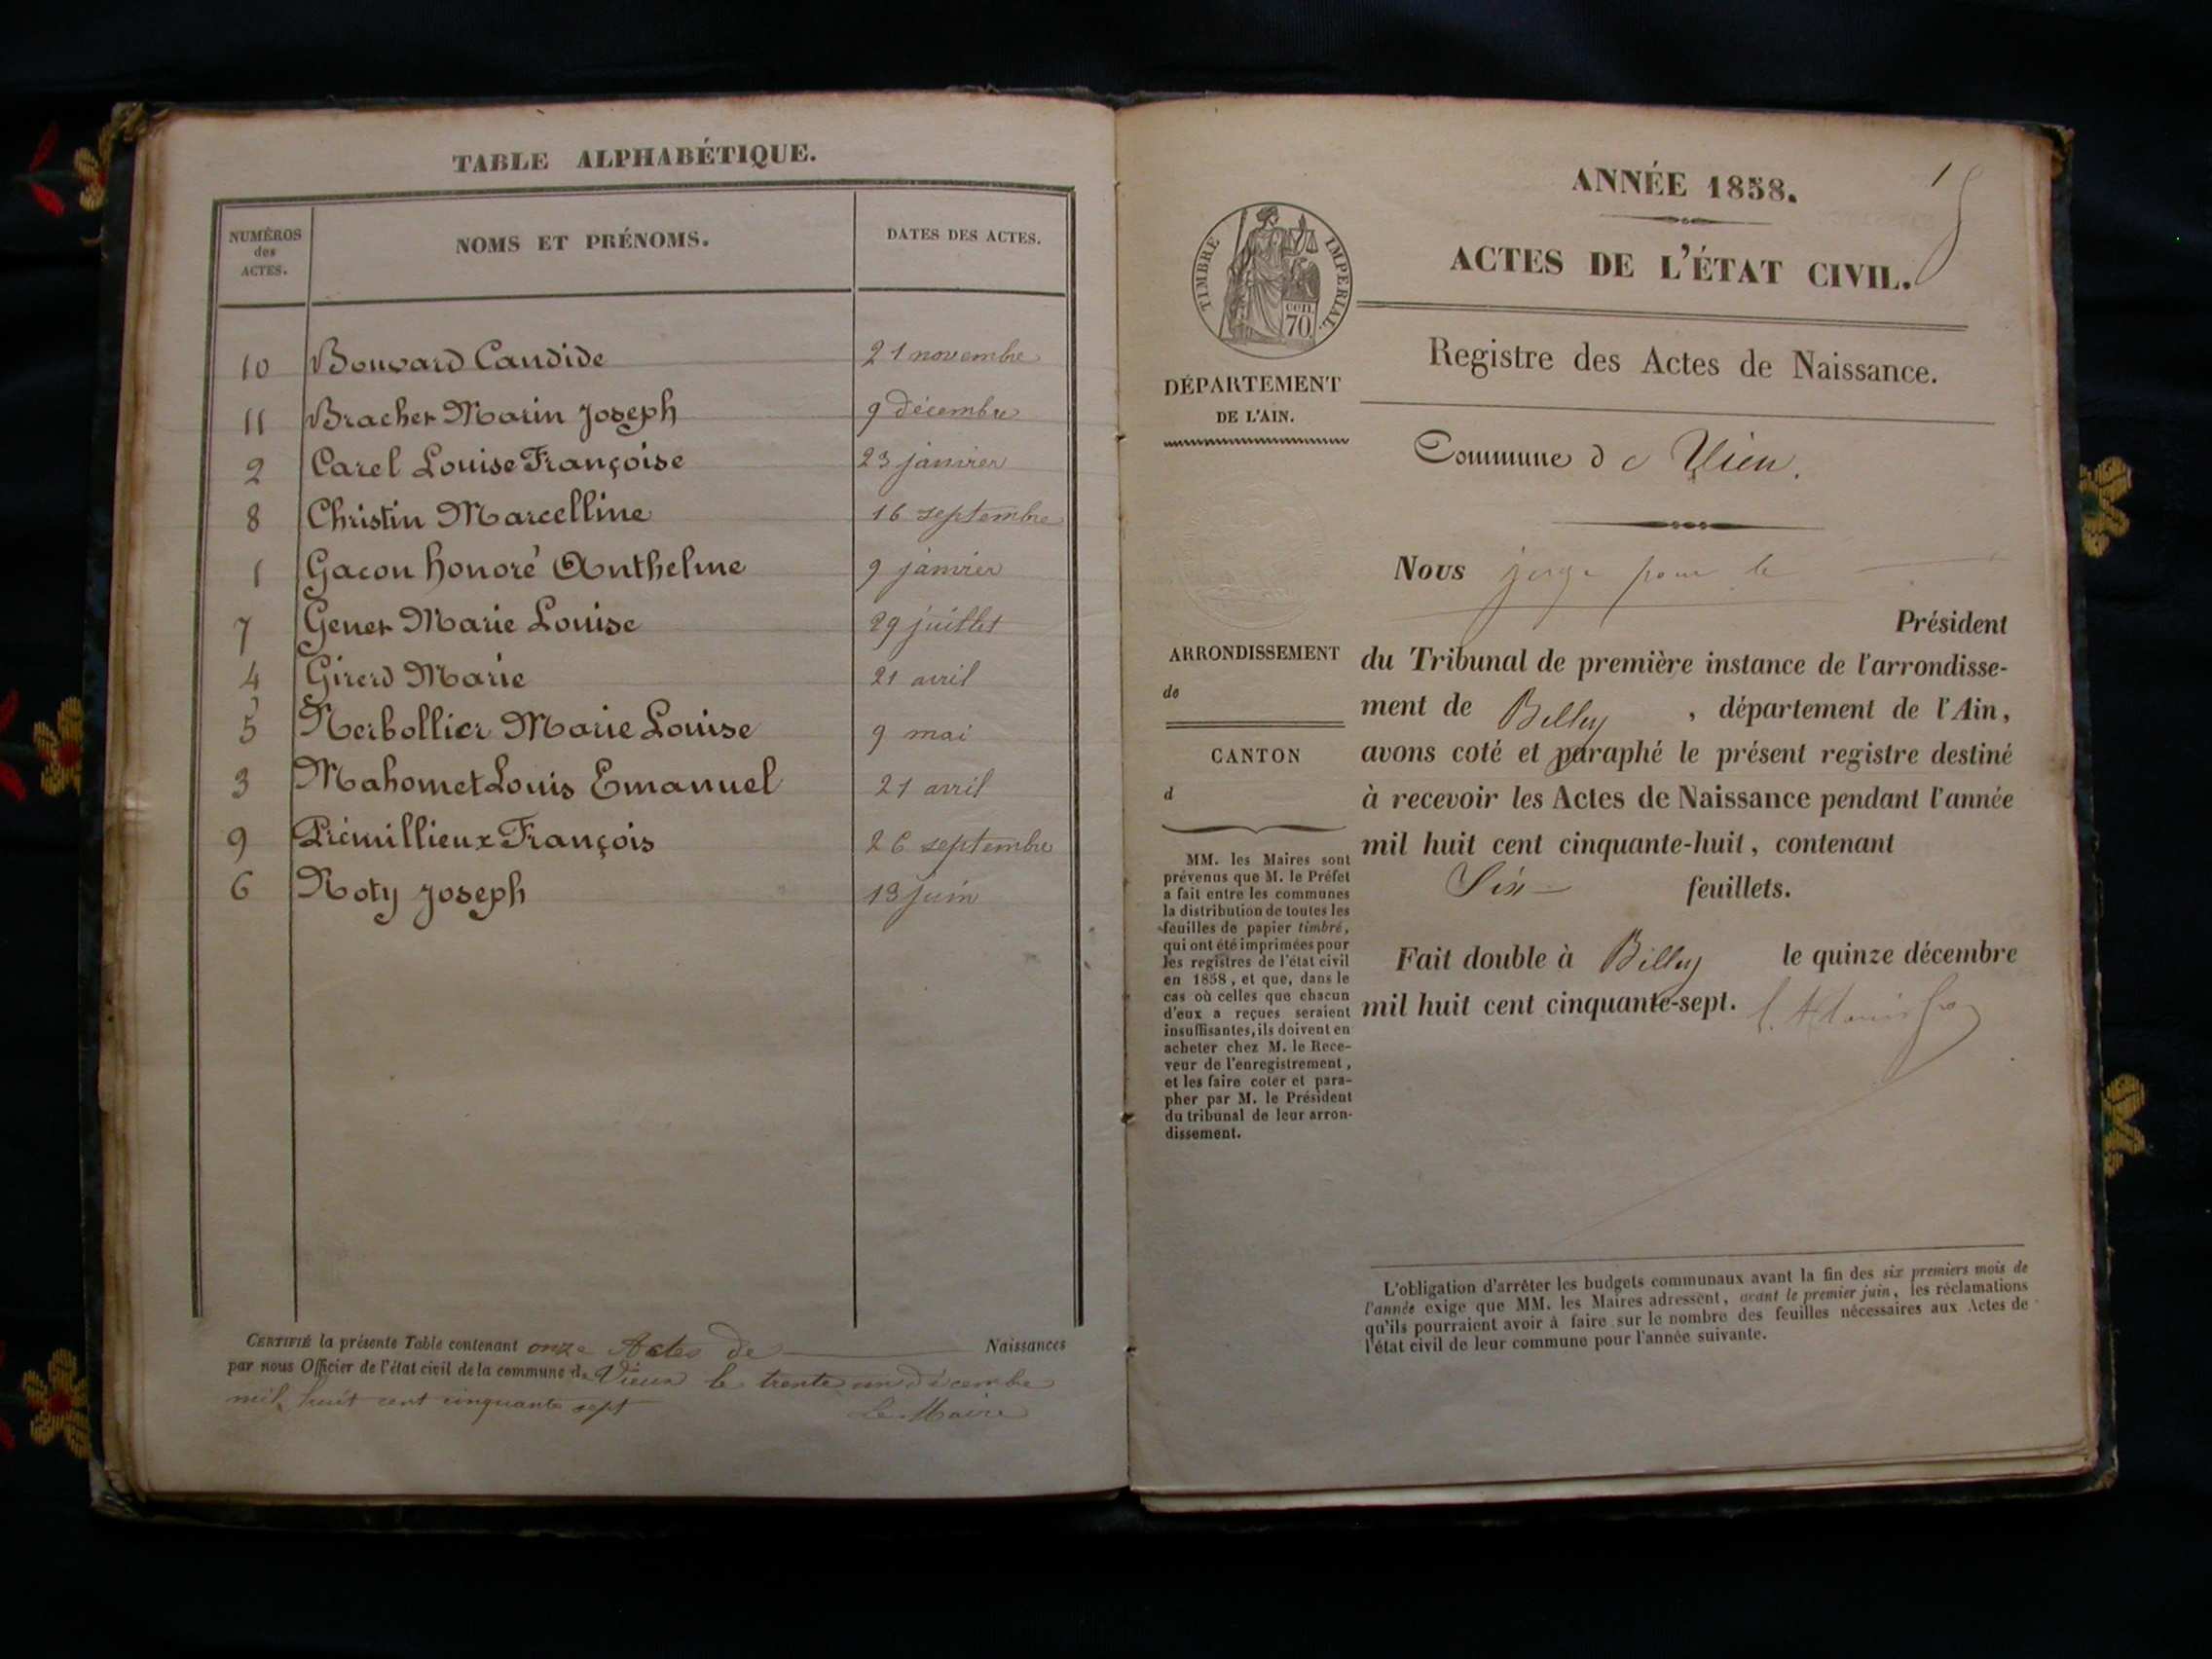 TABLE ALPHABÉTIQUE.
NUMÉROS des ACTES.
NOMS ET PRÉNOMS.
DATES DES ACTES.
10 Bouvard Candide 21 novembre
11 Bracher Marin Joseph 9 décembre
2 Carel Louise Françoise 23 janvier
8 Christin Marcelline 16 septembre
1 Gacon honoré Anthelme 9 janvier
7 Gener Marie Louise 29 juillet
4 Girerd Marie 21 avril
5 Marie Louise 9 mai
3 Mahomet Louis Emanuel 21 avril
9 Prémillieux François 26 septembre
6 Roty Joseph 13 juin
CERTIFIÉ la présente Table contenant onze Actes de Naissances
par nous Officier de l'état civil de la commune de Vieu le trente un décembre
mil huit cent cinquante sept
Le Maire
ANNÉE 1858.
1
ACTES DE L'ÉTAT CIVIL.
TIMBRE IMPERIAL.
cen. 70
Registre des Actes de Naissance.
DÉPARTEMENT
DE L'AIN.
Commune de Vieu.
Nous juge pour le
Président
ARRONDISSEMENT
de
CANTON
d
du Tribunal de première instance de l'arrondisse-
ment de Belley, département de l'Ain,
avons coté et paraphé le présent registre destiné
à recevoir les Actes de Naissance pendant l'année
mil huit cent cinquante-huit, contenant
Six feuillets.
Fait double à Belley le quinze décembre
mil huit cent cinquante-sept.
MM. les Maires sont
prévenus que M. le Préfet
a fait entre les communes
la distribution de toutes les
feuilles de papier timbré,
qui ont été imprimées pour
les registres de l'état civil
en 1858, et que, dans le
cas où celles que chacun
d'eux a reçues seraient
insuffisantes, ils doivent en
acheter chez M. le Rece-
veur de l'enregistrement,
et les faire coter et para-
pher par M. le Président
du tribunal de leur arron-
dissement.
L'obligation d'arrêter les budgets communaux avant la fin des six premiers mois de
l'année exige que MM. les Maires adressent, avant le premier juin, les réclamations
qu'ils pourraient avoir à faire sur le nombre des feuilles nécessaires aux Actes de
l'état civil de leur commune pour l'année suivante.